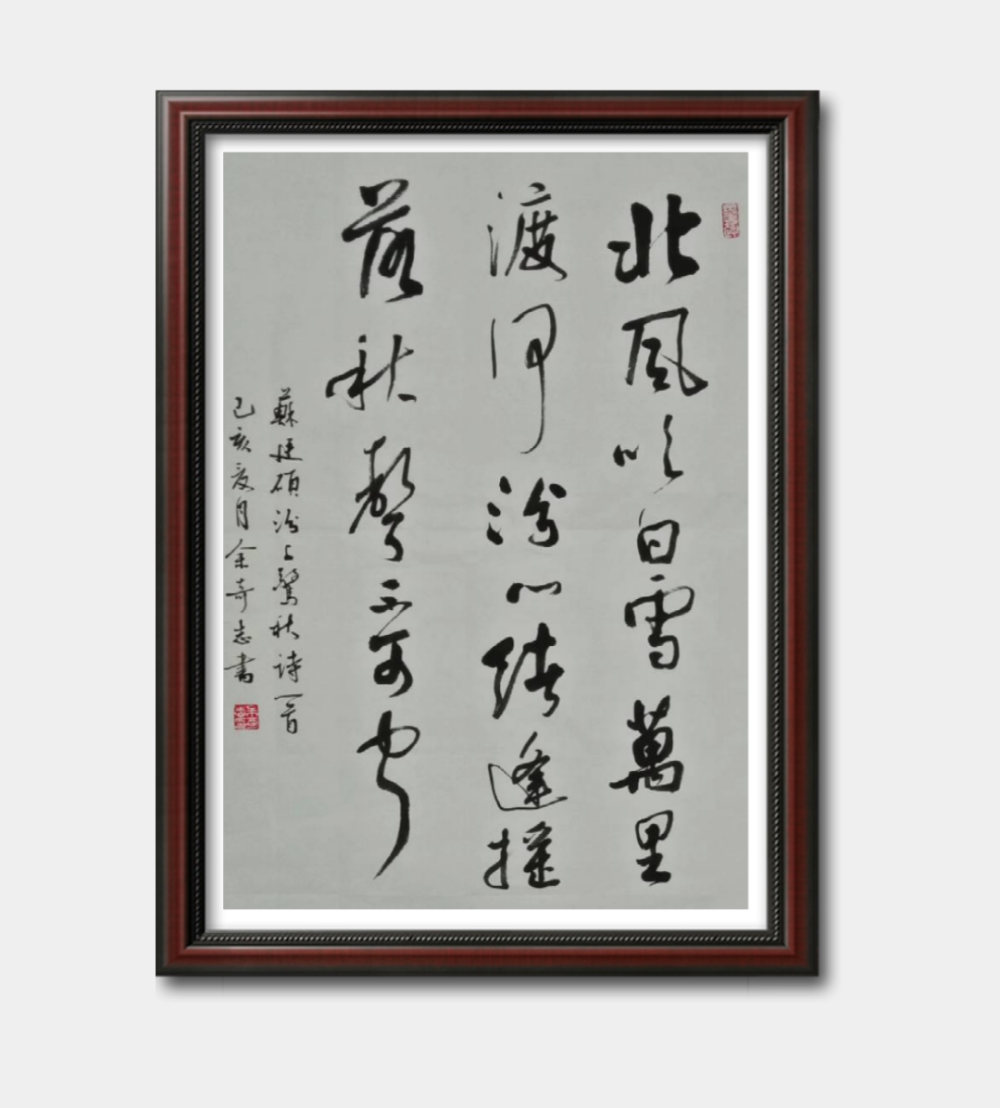 北風吹白雲萬里
渡河汾心緒逢摇
落秋聲不可聞
蘇廷碩汾上驚秋詩一首
己亥夏月余奇志書